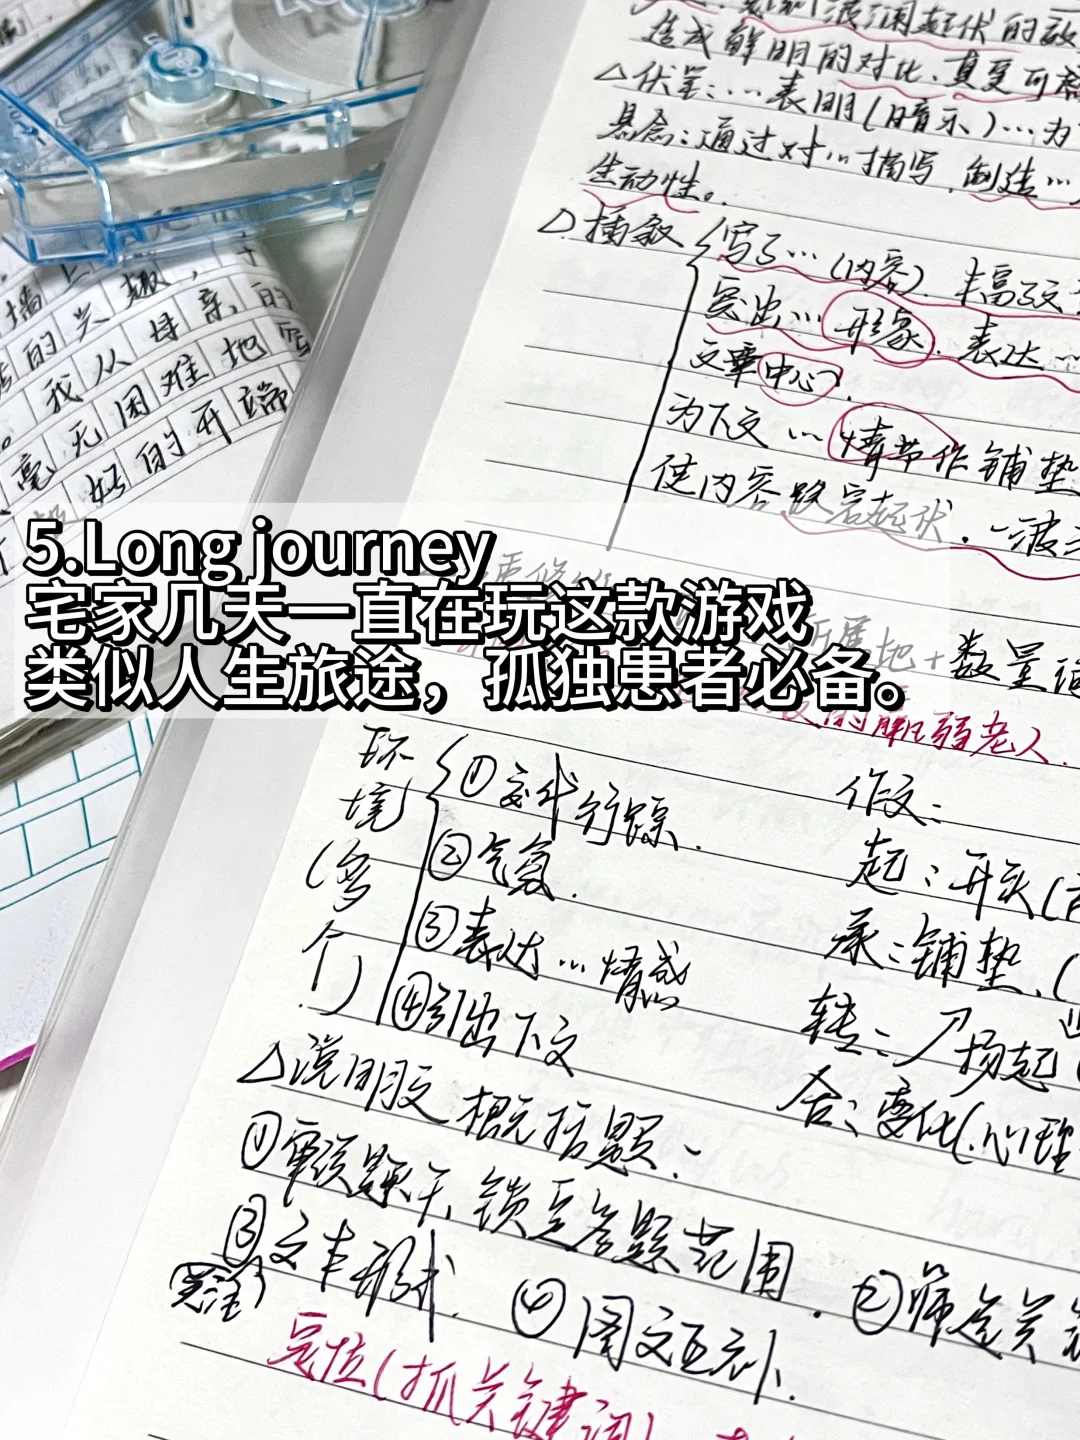 造成鲜明的对比、真妟可
△伏笔:…表明(暗示)…为
悬念:通过对…描写、制造…
生动性。
△插叙 写了…(内容)、丰富了文
突出…形象、表达…
文章中心、
为下文…情节作铺垫
使内容跌宕起伏、一波
趣,
的兴
我从母亲的
毫无困难地写
好的开端
5.Long journey
宅家几天一直在玩这款游戏
类似人生旅途，孤独患者必备。
地+数量
的 弱老人.
环境(多个)
①交代行踪.
②气氛.
③表达…情感
④引出下文
作文:
起:开头(
承:铺垫、(
转:扬起
合:变化(心理
△说明文概括题:
①审清题干,锁定答题范围. ②筛选关
③文本形式. ④图文互补.
(关注)
定位(抓关键词)